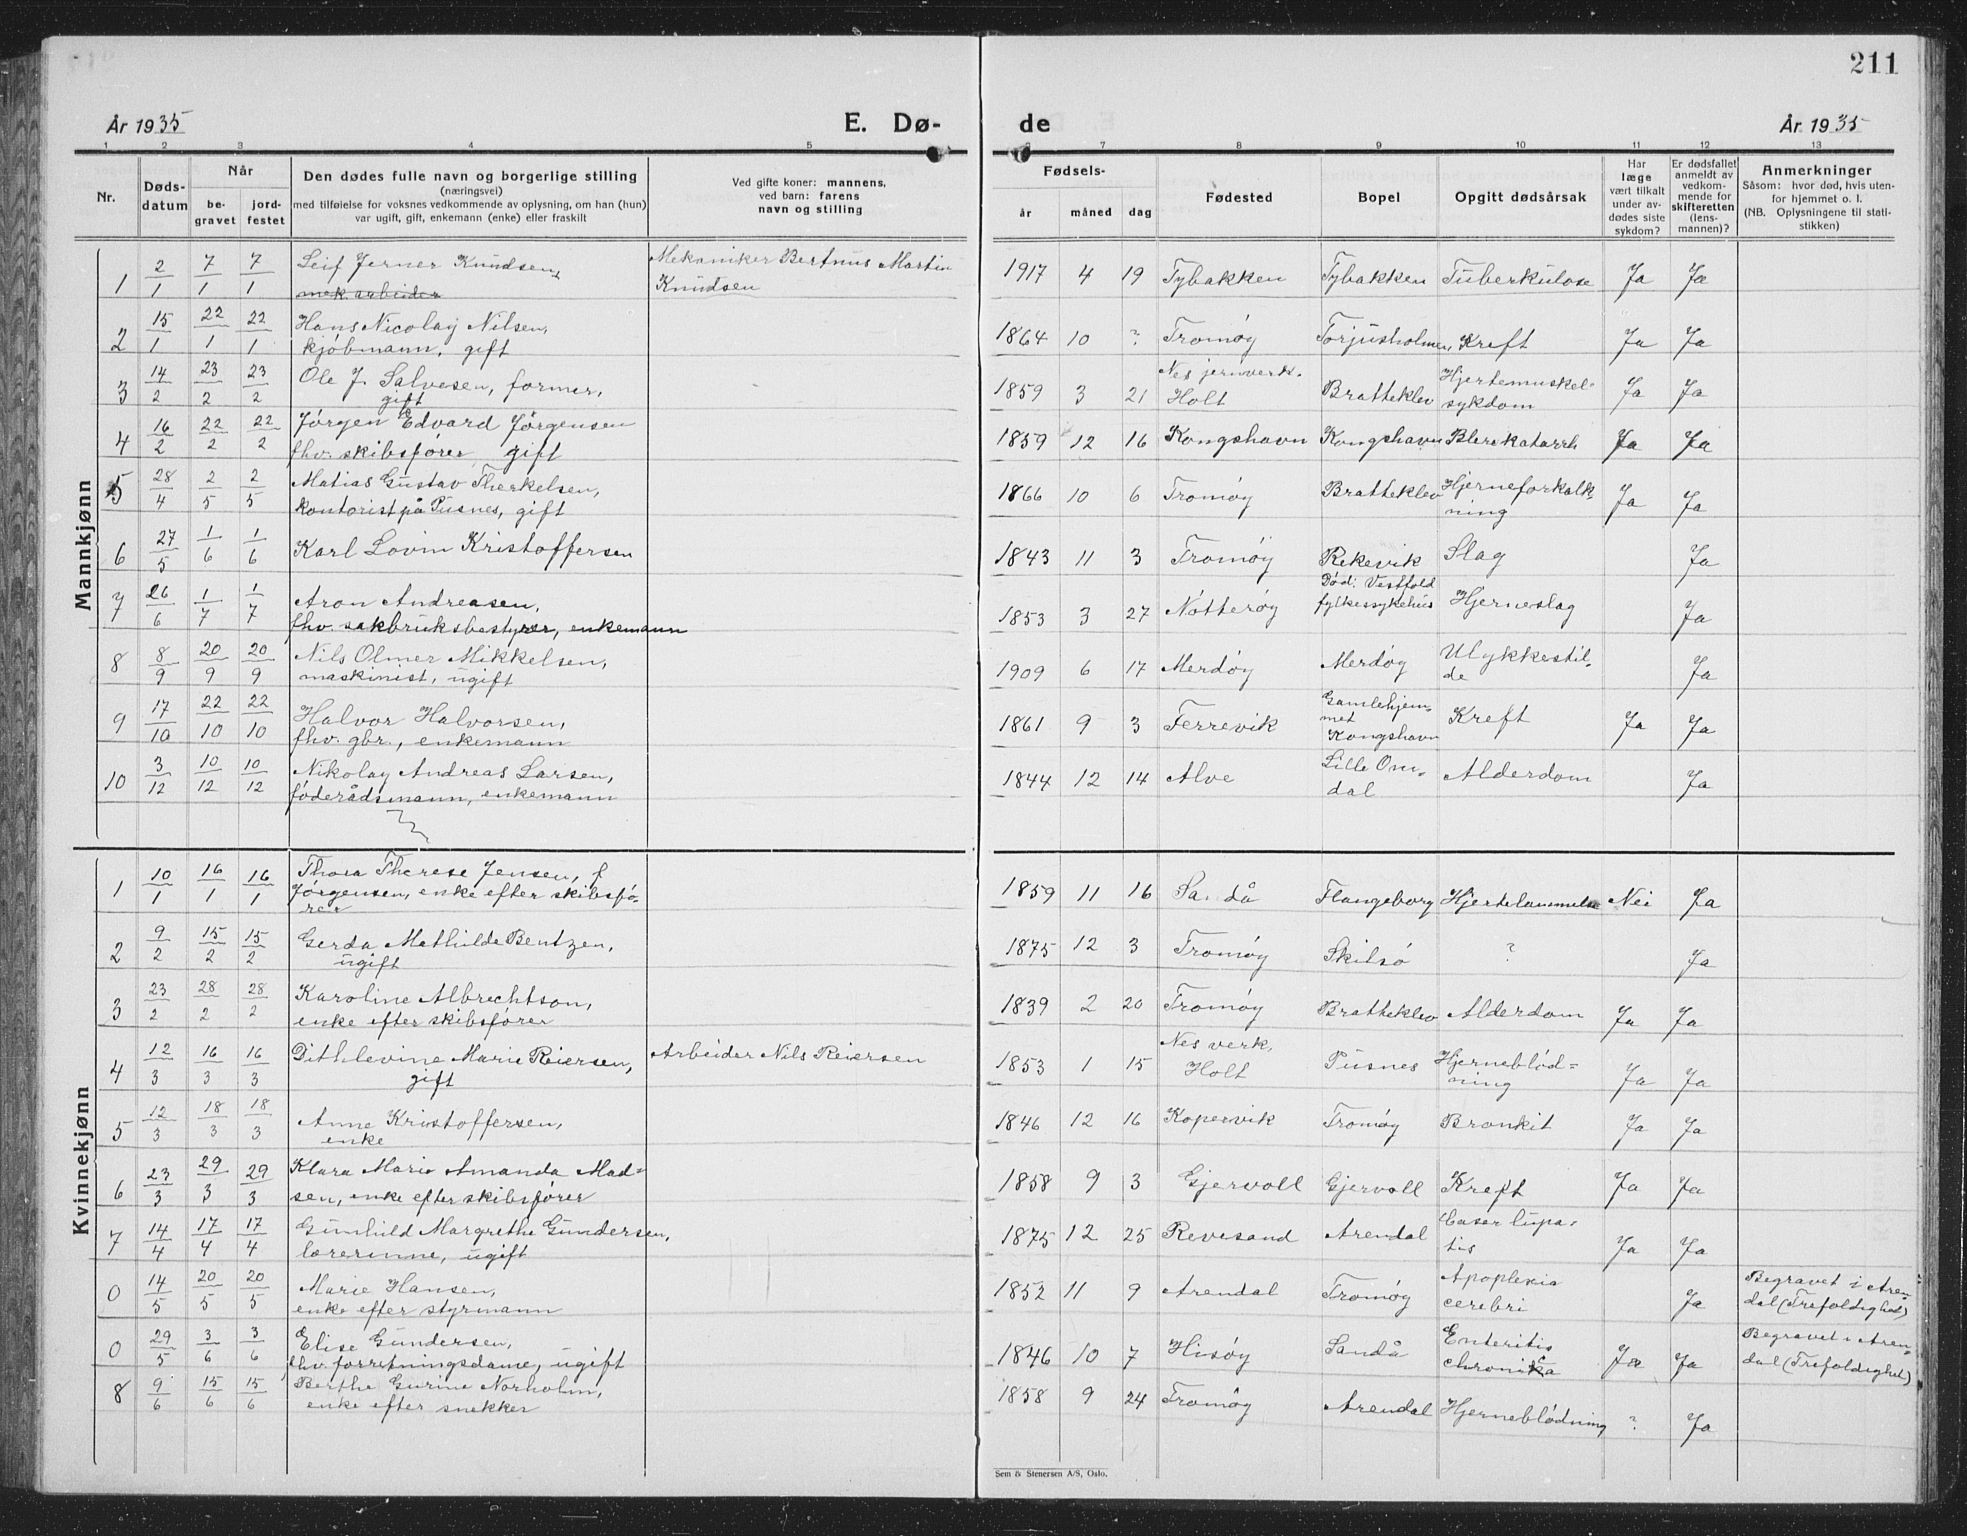 211
År 1935 E. Dø- de År 1935
1 2 3 4 5 6 7 8 9 10 11 12 13
Nr. Døds-datum Når be-gravet jord-festet
Den dødes fulle navn og borgerlige stilling
(næringsvei)
med tilføielse for voksnes vedkommende av oplysning, om han (hun)
var ugift, gift, enkemann (enke) eller fraskilt
Ved gifte koner: mannens,
ved barn: farens
navn og stilling
Fødsels-
år måned dag
Fødested
Bopel
Opgitt dødsårsak
Har læge vært tilkalt under av-dødes siste sykdom?
Er dødsfallet anmeldt av vedkom-mende for skifteretten (lens-mannen)?
Anmerkninger
Såsom: hvor død, hvis uten-
for hjemmet o. l.
(NB. Oplysningene til stati-
stikken)
Mannkjønn
1 2/1 7/1 7/1 Leif Jerner Knudsen, mek. arbeider Mekaniker Bertnus Martin Knudsen 1917 4 19 Tybakken Tybakken Tuberkulose Ja Ja
2 15/1 22/1 22/1 Hans Nicolay Nilsen, kjøbmann, gift 1864 10 ? Tromøy Torjusholmen Kreft Ja Ja
3 14/2 23/2 23/2 Ole J. Salvesen, former, gift 1859 3 21 Nes jernverk. Holt Bratteklev Hjertemuskel-sykdom Ja Ja
4 16/2 22/2 22/2 Jørgen Edvard Jørgensen fhv. skibsfører, gift 1859 12 16 Kongshavn Kongshavn Blerekatarrh Ja Ja
5 28/4 2/5 2/5 Matias Gustav Therkelsen, kontorist på Pusnes, gift 1866 10 6 Tromøy Bratteklev Hjerneforkalkning Ja Ja
6 27/5 1/6 1/6 Karl Lovin Kristoffersen 1843 11 3 Tromøy Rekevik Slag Ja
7 26/6 1/7 1/7 Aron Andreasen, fhv. sakbruksbestyrer, enkemann 1853 3 27 Nøtterøy Død: Vestfold fylkessykehus Hjerneslag Ja
8 8/9 20/9 20/9 Nils Olmer Mikkelsen, maskinist, ugift 1909 6 17 Merdøy Merdøy Ulykkestil-de Ja
9 17/10 22/10 22/10 Halvor Halvorsen, fhv. gbr., enkemann 1861 9 3 Færrevik Gamlehjem-met Kongshavn Kreft Ja Ja
10 3/12 10/12 10/12 Nikolay Andreas Larsen, føderådsmann, enkemann 1844 12 14 Alve Lille Om-dal Alderdom Ja
Kvinnekjønn
1 10/1 16/1 16/1 Thora Therese Jensen, f Jørgensen, enke efter skibsfø-rer 1859 11 16 Sandå Flangeborg Hjertelammelse Nei Ja
2 9/2 15/2 15/2 Gerda Mathilde Bentzen, ugift 1875 12 3 Tromøy Skilsø ? Ja
3 23/2 28/2 28/2 Karoline Albrechtson, enke efter skibsfører 1839 2 20 Tromøy Bratteklev Alderdom Ja Ja
4 12/3 16/3 16/3 Dithlevine Marie Reiersen, gift Arbeider Nils Reiersen 1853 1 15 Nes verk, Holt Pusnes Hjerneblød=ning Ja Ja
5 12/3 18/3 18/3 Anne Kristoffersen, enke 1846 12 16 Kopervik Tromøy Bronkit Ja Ja
6 23/3 29/3 29/3 Klara Marie Amanda Mad-sen, enke efter skibsfører 1858 9 3 Gjervoll Gjervoll Kreft Ja Ja
7 14/4 17/4 17/4 Gunhild Margrethe Gundersen, lærerinne, ugift 1875 12 25 Revesand Arendal Ja Ja
0 14/5 20/5 20/5 Marie Hansen, enke efter styrmann 1852 11 9 Arendal Tromøy Apoplexia cerebri Ja Begravet i Aren-dal (Trefoldighed)
0 29/5 3/6 3/6 Elise Gundersen, fhv. forretningsdame, ugift 1846 10 7 Hisøy Sandå Enteritis chronica Ja Ja Begravet i Aren-dal (Trefoldighet)
8 9/6 15/6 15/6 Berthe Gurine Norholm, enke efter snekker 1858 9 24 Tromøy Arendal Hjerneblødning ? Ja
Sem & Stenersen A/S, Oslo.